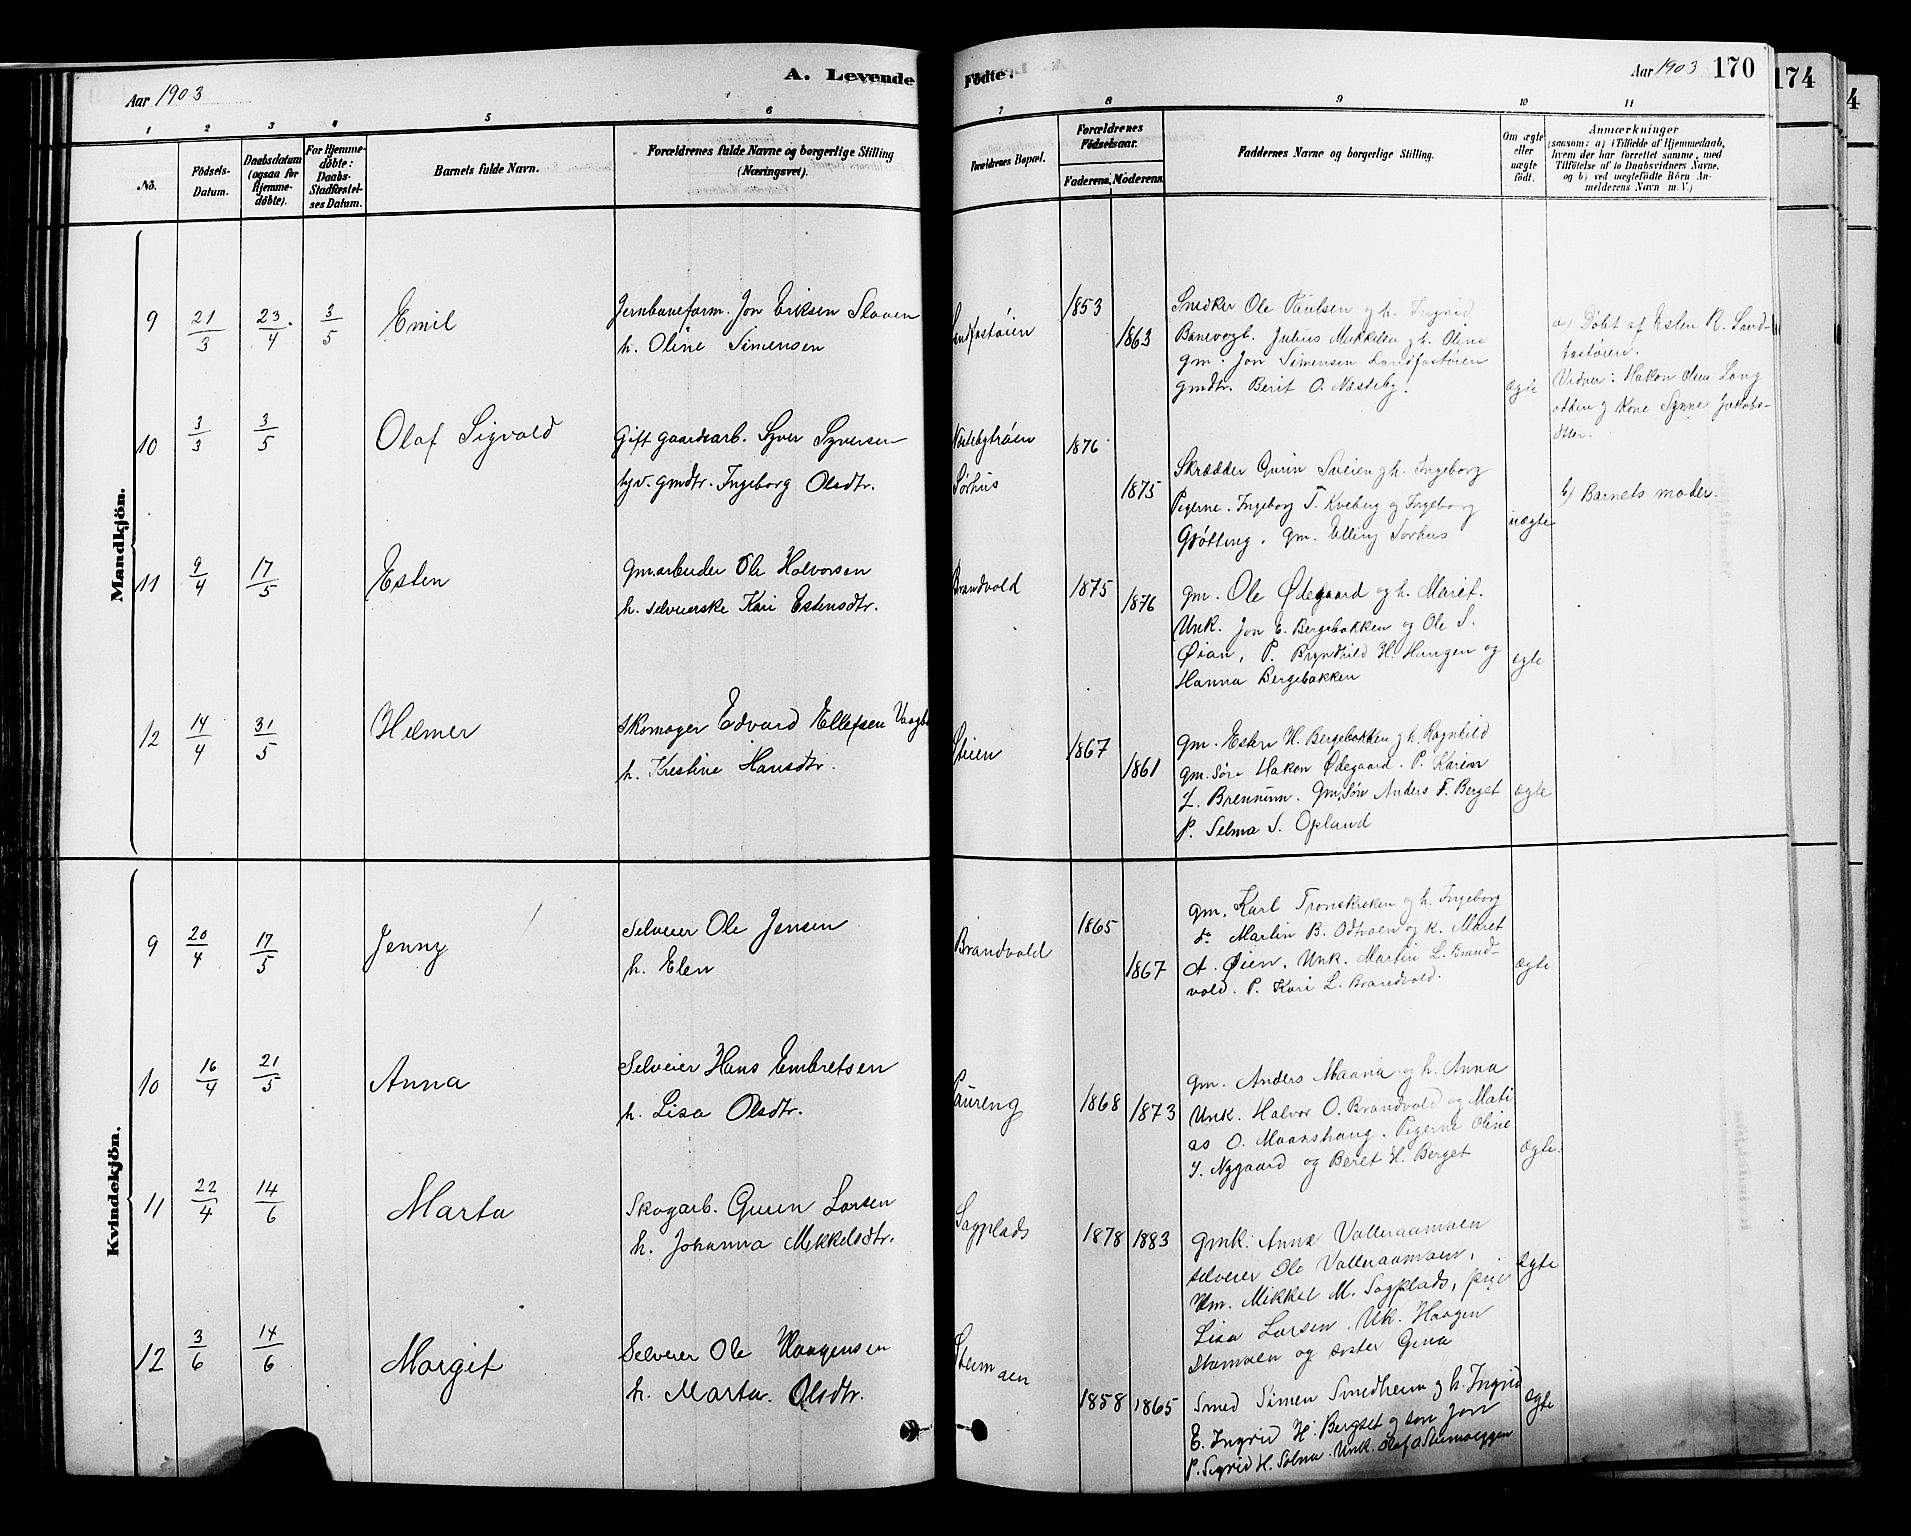 A. Levende Födte.
Aar 1903
Aar 1903 170
174
4
1 2 3 4 5 6 7 8 9 10 11
No.
Födsels-Datum.
Daabsdatum (ogsaa for Hjemmedöbte).
For Hjemmedöbte: Daabs-Stadfæstelses Datum.
Barnets fulde Navn.
Forældrenes fulde Navne og borgerlige Stilling (Næringsvei).
Forældrenes Bopæl.
Forældrenes Födselsaar.
Faderens. Moderens.
Faddernes Navne og borgerlige Stilling.
Om ægte eller uægte födt.
Anmærkninger
(saasom: a) i Tilfælde af Hjemmedaab, hvem der har forrettet samme, med Tilföielse af to Daabsvidners Navne, og b) ved uægtefödte Börn Anmelderens Navn m. V.)
Mandkjön.
9 21/3 23/4 3/5 Emil
Jernbaneform. Jon Eriksen Slaaen
h. Oline Simensen
Landfastøien
1853 1863
Snedker Ole Paulsen g h. Ingrid
Banevogt. Julius Mikkelsen g h. Oline
gm. Jon Simensen Landfastøien
gmdtr. Berit O. Næsteby.
ægte
a) Døbt af Esten R. Land-
fastøien.
Vidner: Hakon Olsen Lang
odden g Kone Synne Jakobs-
dtter.
10 3/3 3/5 Olaf Sigvald
Gift gaardsarb. Syver Syversen
hjv. gmdtr. Ingeborg Olsdtr.
Næstebytrøen
Sørhus
1876 1875
Skrædder Guren Sveien g h. Ingeborg
Pigerne. Ingeborg T. Kveberg og Ingeborg
Grøtting. gm. Elling Sørhus
uægte
b) Barnets moder.
11 9/4 17/5 Esten
gm.arbeider Ole Halvorsen
h. selveierske Kari Estensdtr.
Brandvold
1875 1876
gm. Ole Ødegaard og h. Marit.
Unk. Jon E. Bergebakken og Ole S.
Øian, P. Bryndhild H. Haugen og
Hanna Bergebakken
ægte
12 14/4 31/5 Helmer
Skomager Edvard Ellefsen
h. Kristine Hansdtr.
Steien
1867 1861
gm. Esten H. Bergebakken g h. Ragnhild
gm. søn Hakon Ødegaard. P. Karen
L. Brennum. gm. søn Anders F. Berget
P. Selma S. Opland
ægte
Kvindekjön.
9 20/4 17/5 Jenny
Selveier Ole Jensen
h. Elen
Brandvold
1865 1867
gm. Karl Tronskroken og h. Ingeborg
do Martin B. Odtroen og k. Maret
A. Øien, Unk. Martin L. Brand-
vold. P. Kari L. Brandvold.
ægte
10 16/4 21/5 Anna
Selveier Hans Embretsen
h. Lisa Olsdtr.
Paureng
1868 1873
gm. Anders Maana og h. Anna
Unk. Halvor O. Brandvold og Mati
as O. Maanshaug. Pigerne Oline
J. Nygaard og Beret H. Berget
ægte.
11 22/4 14/6 Marta
Skogarb. Guren Larsen
h. Johanna Mikkelsdtr.
Sagplads
1878 1883
gmk. Anne Valleraamoen
selveier Ole Valleraamoen,
Um. Mikkel M. Sagplads, pige
Lisa Larsen. Uk. Haagen
Stamoen og søster Gina
ægte
12 3/6 14/6 Margit
Selveier Ole Haagensen
h. Marta Olsdtr.
Steimoen
1858 1865
Smed Simen Smedheim g h. Ingrid
E. Ingrid H. Bergset g søn Jon
P. Sigrid H. Solna. Unk. Olaf O Steimoeggen
ægte